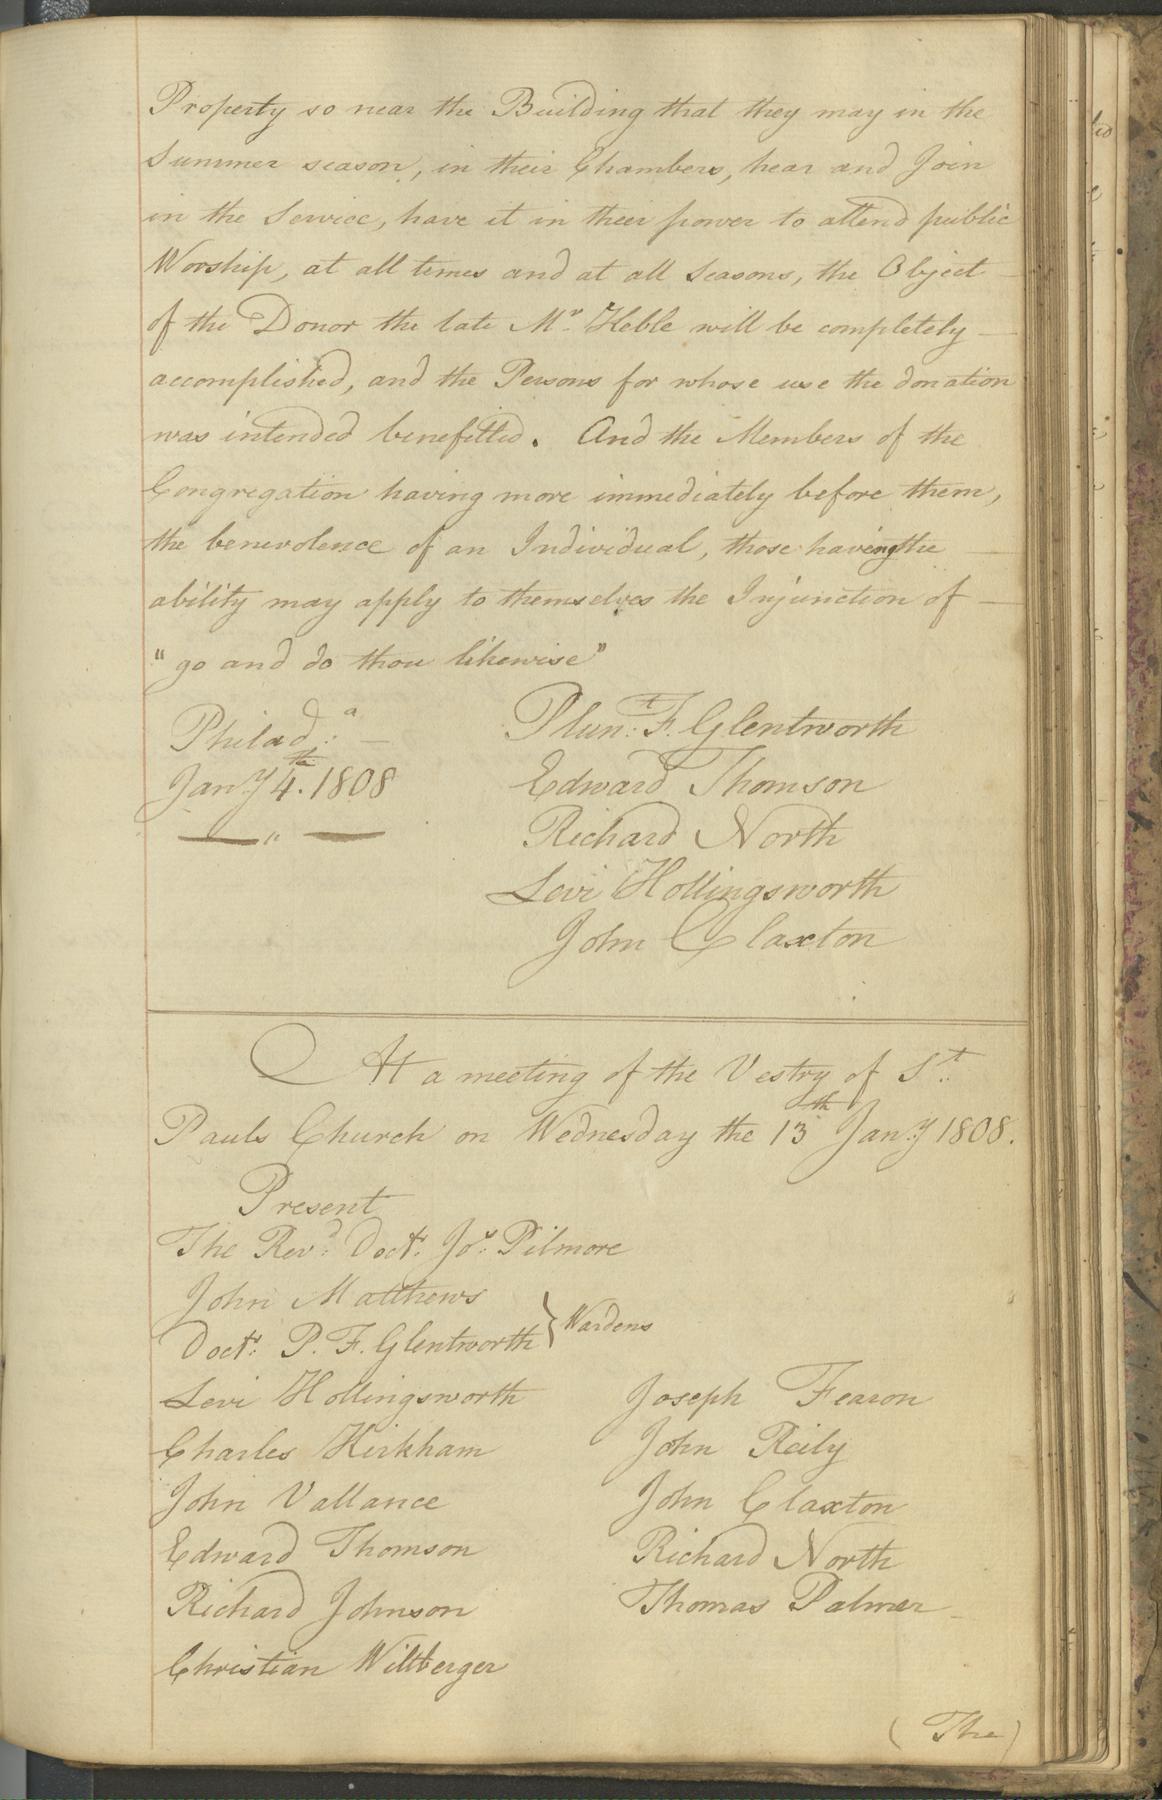 Property so near the Building that they may in the
Summer season, in their Chambers, hear and Join
in the Service, have it in their power to attend public
Worship, at all times and at all Seasons, the Object
of the Donor the late Mr. Keble will be completely
accomplished, and the Persons for whose use the donation
was intended benefitted. And the Members of the
Congregation having more immediately before them,
the benevolence of an Individual, those having the
ability may apply to themselves the Injunction of
"go and do thou likewise"
Philada.
Jany 4th. 1808
Plunt. F. Glentworth
Edward Thomson
Richard North
Levi Hollingsworth
John Claxton
At a meeting of the Vestry of St.
Pauls Church on Wednesday the 13th Jany 1808.
Present
The Revd. Doctr. Jos. Pilmore
John Matthews
Doctr. P. F. Glentworth } Wardens
Levi Hollingsworth
Charles Kirkham
John Vallance
Edward Thomson
Richard Johnson
Christian Wiltberger
Joseph Fearon
John Reily
John Claxton
Richard North
Thomas Palmer
(The)